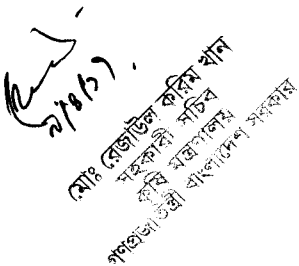 ২/৪/১৭
মোঃ রেজাউল করিম খান
সহকারী সচিব
কৃষি মন্ত্রণালয়
গণপ্রজাতন্ত্রী বাংলাদেশ সরকার